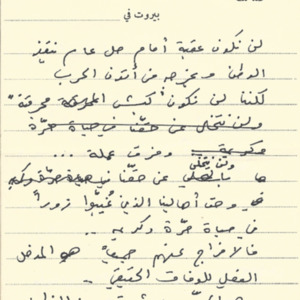 بيروت في
لن نكون عقبة أمام حل عام ينقذ
الوطن ويخرجه من أتون الحرب
لكننا لن نكون "كبش محرقة"
ولن نتخلى عن حقنا في حياة حرّة
وكريمة ومزق عملة ...
ولن نتخلى
عن حقنا في حياة حرّة وكريمة
وحق أهالينا الذين غُيّبوا زوراً
في حياة حرّة وكريمة ..
فالافراج عنهم جميعاً هو المدخل
الفعلي للوفاق الحقيقي ..